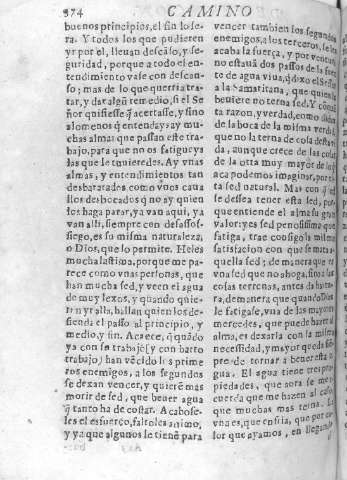 374 CAMINO
buenos principios, el fin lo se-
ra. Y todos los que pudieren
yr por el, lleuan descãso, y se-
guridad, porque a todo el en-
tendimiento vase con descan-
so; mas de lo que querria tra-
tar, y dar algũ remedio, si el Se
ñor quisiesse q̃ acertasse, y sino
alomenos q̃ entẽday; ay mu-
chas almas que passan este tra-
bajo, para que no os fatigueys
las que le tuuieredes. Ay vnas
almas, y entendimientos tan
desbaratados como vnos caua
llos desbocados q̃ no ay quien
los haga parar, ya van aqui, ya
van alli, siempre con desassos-
siego, es su misma naturaleza,
o Dios, que lo permite. Heles
mucha lastima, porque me pa-
rece como vnas personas, que
han mucha sed, y veen el agua
de muy lexos, y quãndo quie-
ren yr alla, hallan quien los de-
fienda el passo al principio, y
medio, y fin. Acaece, q̃ quãdo
ya con se trabajo [y con harto
trabajo] han vẽcido los prime
ros enemigos, a los segundos
se dexan vencer, y quierẽ mas
morir de sed, que beuer agua
q̃ tanto ha de costar. Acabose-
les el esfuerço, faltoles animo,
y ya que algunos le tienẽ para
vencer tambien los segundos
enemigos, a los terceros, se les
acaba la fuerça, y por ventura
no estauã dos passos de la fuen
te de agua viua, q̃ dixo el Señor
a la Samaritana, que quien la
beuiere no terna sed. Y con
ta razon, y verdad, como dicha
de la boca de la misma verdad,
que no la terna de cosa desta vi
da, aunque crece de las cosas
de la otra muy mayor de lo
aca podemos imaginar, por
ta sed natural. Mas con q̃ sed
se dessea tener esta sed, por-
que entiende el alma su gran
valor: y es sed penosissima que
fatiga, trae consigo la misma
satisfacion con que se mata
quella sed; de manera que es
vna sed que no ahoga, sino a las
cosas terrenas, antes da harta-
ra, de manera que quando Dios
le satisfaze, vna de las mayores
mercedes, que puede hazer al
alma, es dexarla con la misma
necessidad, y mayor queda siẽ-
pre de tornar a beuer esta a-
gua. El agua tiene tres pro-
piedades, que aora se me a-
cuerda que me hazen al caso
que muchas mas terna. La
vna es, que enfria, que por ca-
lor que ayamos, en llegando